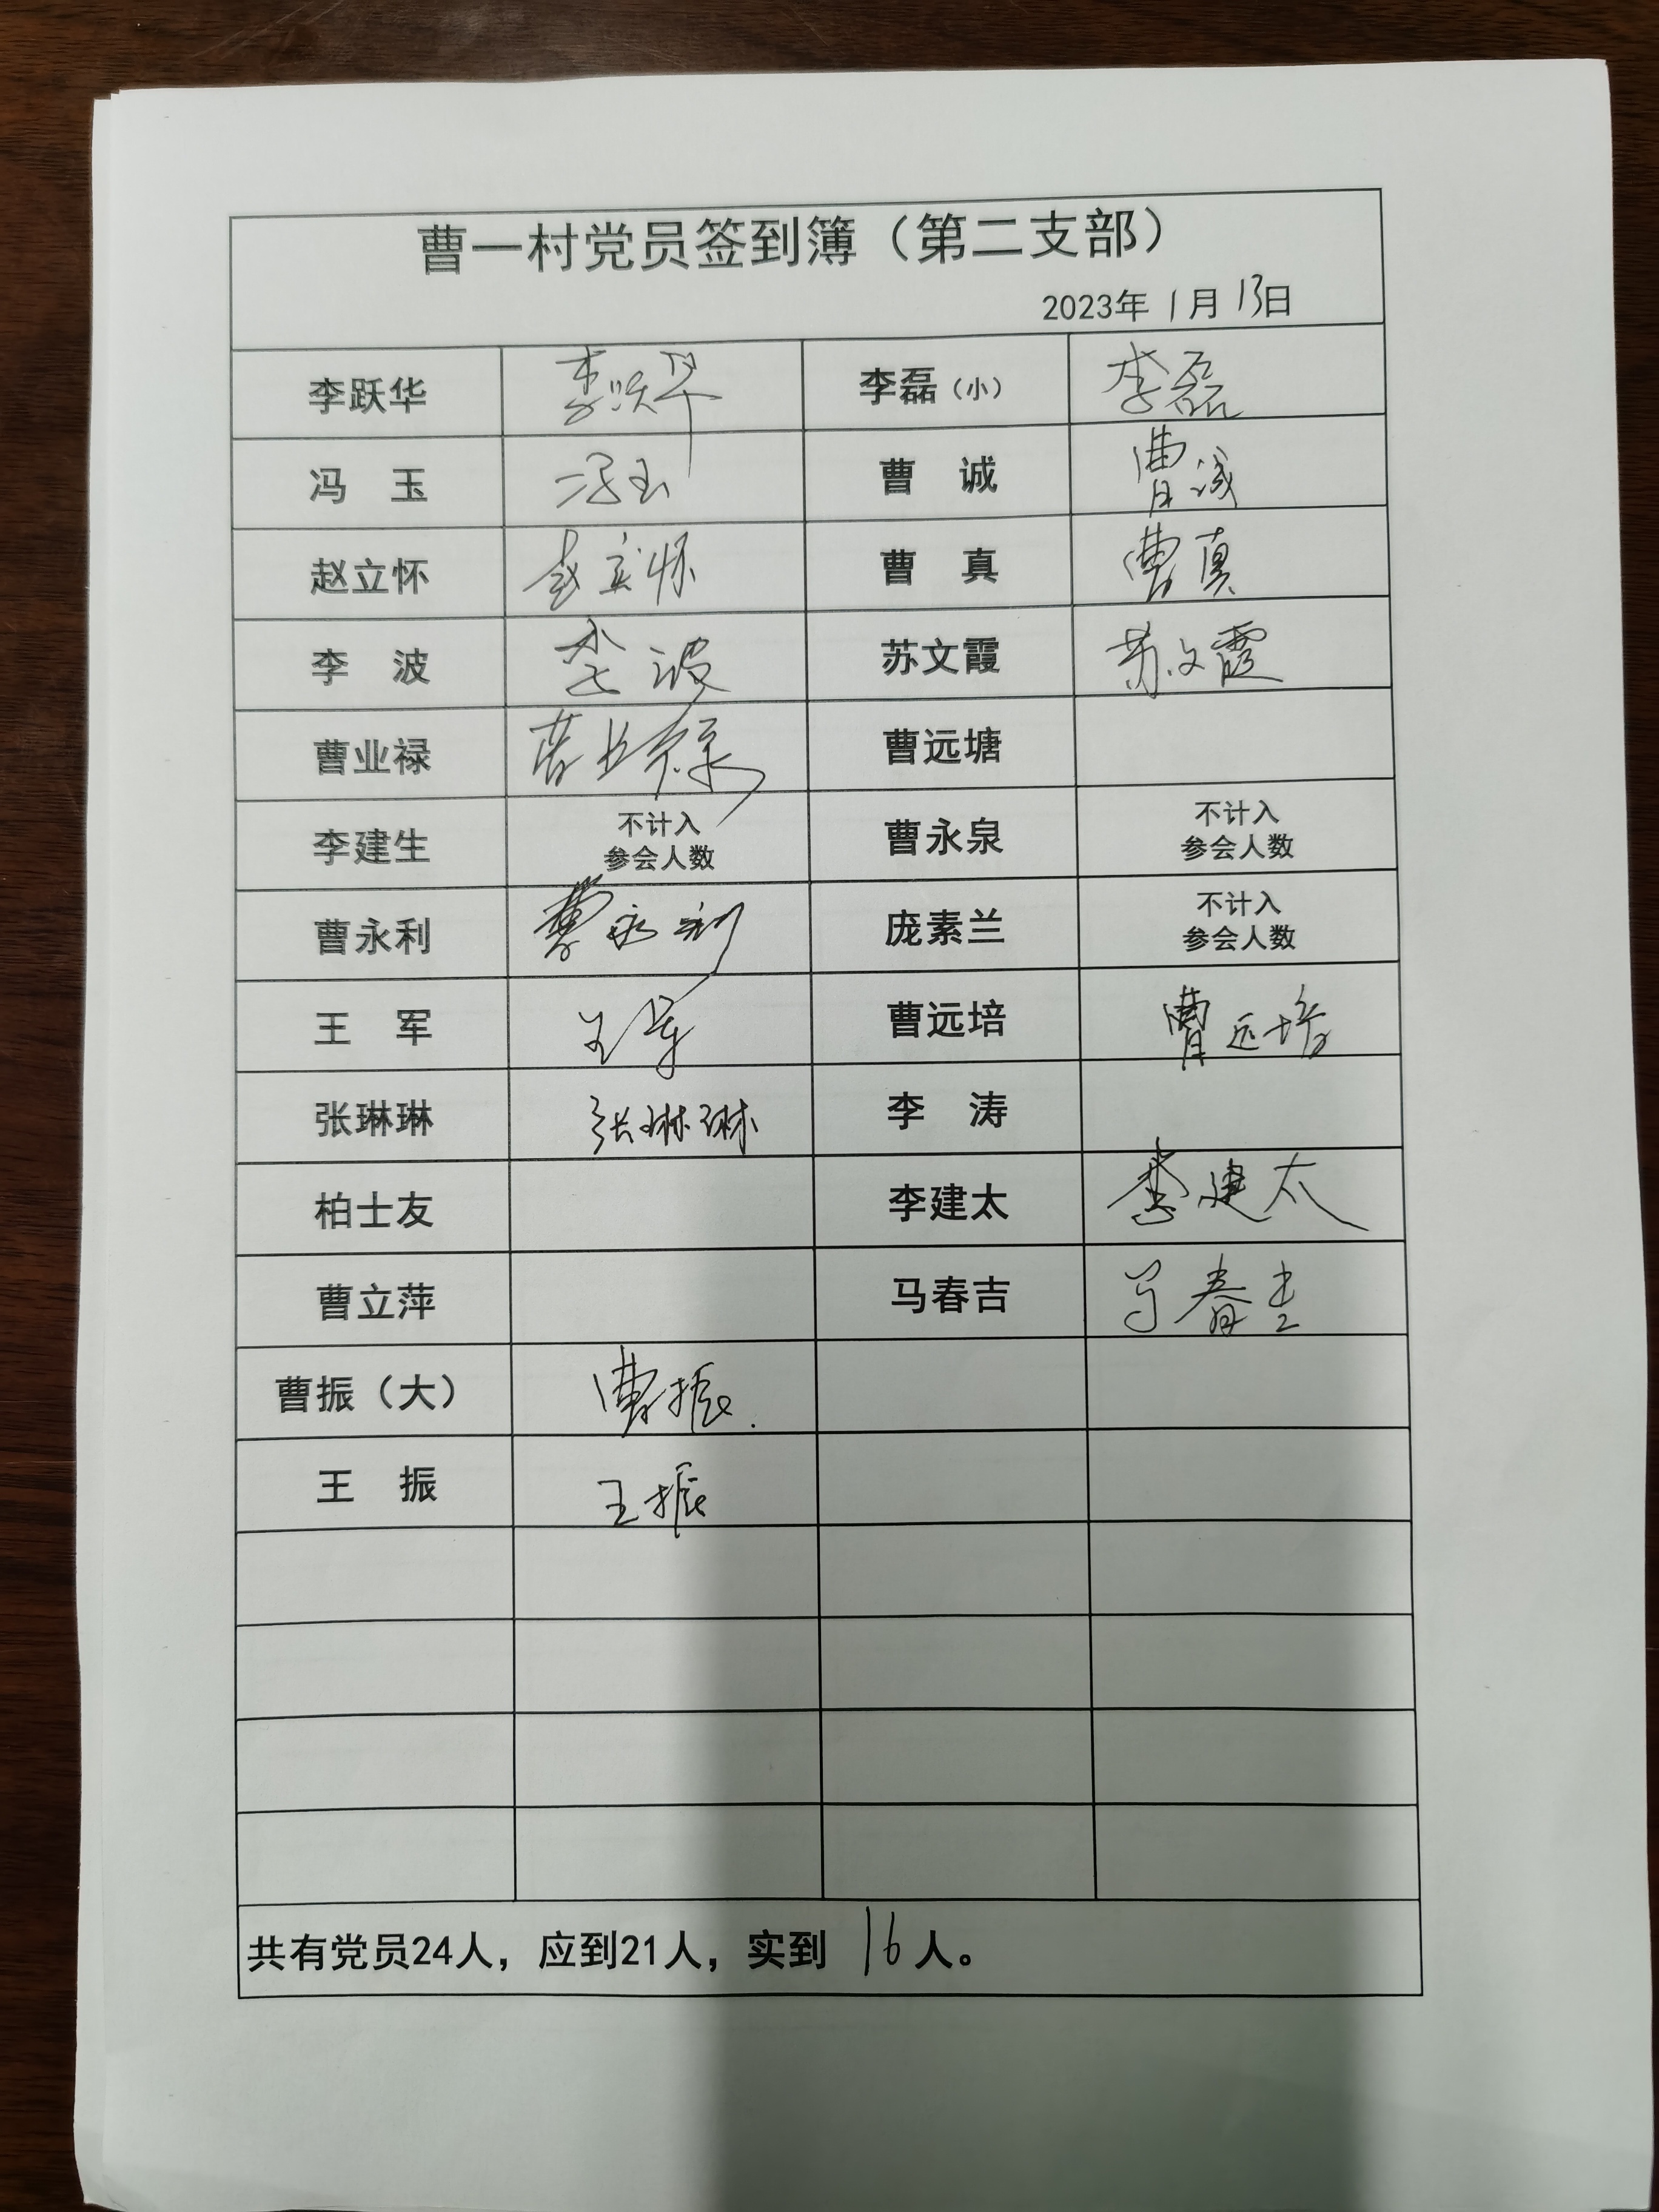 曹一村党员签到簿（第二支部）
2023年 1月 13日
李跃华 李跃华 李磊（小） 李磊
冯 玉 冯玉 曹 诚 曹诚
赵立怀 赵立怀 曹 真 曹真
李 波 李波 苏文霞 苏文霞
曹业禄 曹业禄 曹远塘
李建生 不计入 曹永泉 不计入
参会人数 参会人数
曹永利 曹永利 庞素兰 不计入
参会人数
王 军 王军 曹远培 曹远培
张琳琳 张琳琳 李 涛
柏士友 李建太 李建太
曹立萍 马春吉 马春吉
曹振（大） 曹振.
王 振 王振
共有党员24人，应到21人，实到 16人。